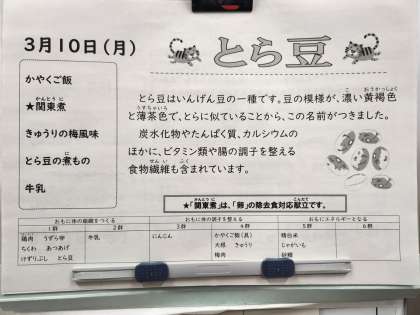 3月10日(月)
とら豆
かやくご飯
★関東煮
きゅうりの梅風味
とら豆の煮もの
牛乳
とら豆はいんげん豆の一種です。豆の模様が、濃い黄褐色
と薄茶色で、とらに似ていることから、この名前がつきました。
炭水化物やたんぱく質、カルシウムの
ほかに、ビタミン類や腸の調子を整える
食物繊維も含まれています。
★「関東煮」は、「卵」の除去食対応献立です。
おもに体の組織をつくる おもに体の調子を整える おもにエネルギーとなる
1群 2群 3群 4群 5群 6群
鶏肉 うずら卵 牛乳 にんじん かやくご飯(具) 精白米
ちくわ あつあげ 大根 きゅうり じゃがいも
けずりぶし とら豆 梅肉 砂糖